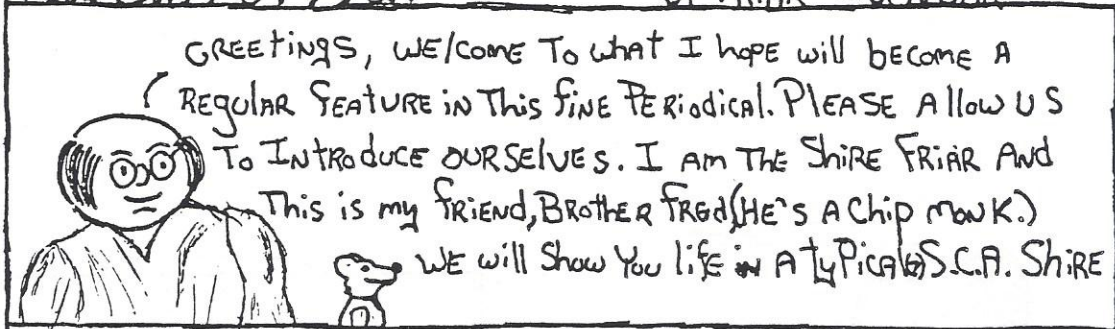 GREETINGS, WELCOME TO WHAT I HOPE WILL BECOME A
REGULAR FEATURE IN THIS FINE PERIODICAL. PLEASE ALLOW US
TO INTRODUCE OURSELVES. I AM THE SHIRE FRIAR AND
THIS IS MY FRIEND, BROTHER FRED (HE'S A CHIP MONK.)
WE WILL SHOW YOU LIFE IN A TYPICAL S.C.A. SHIRE